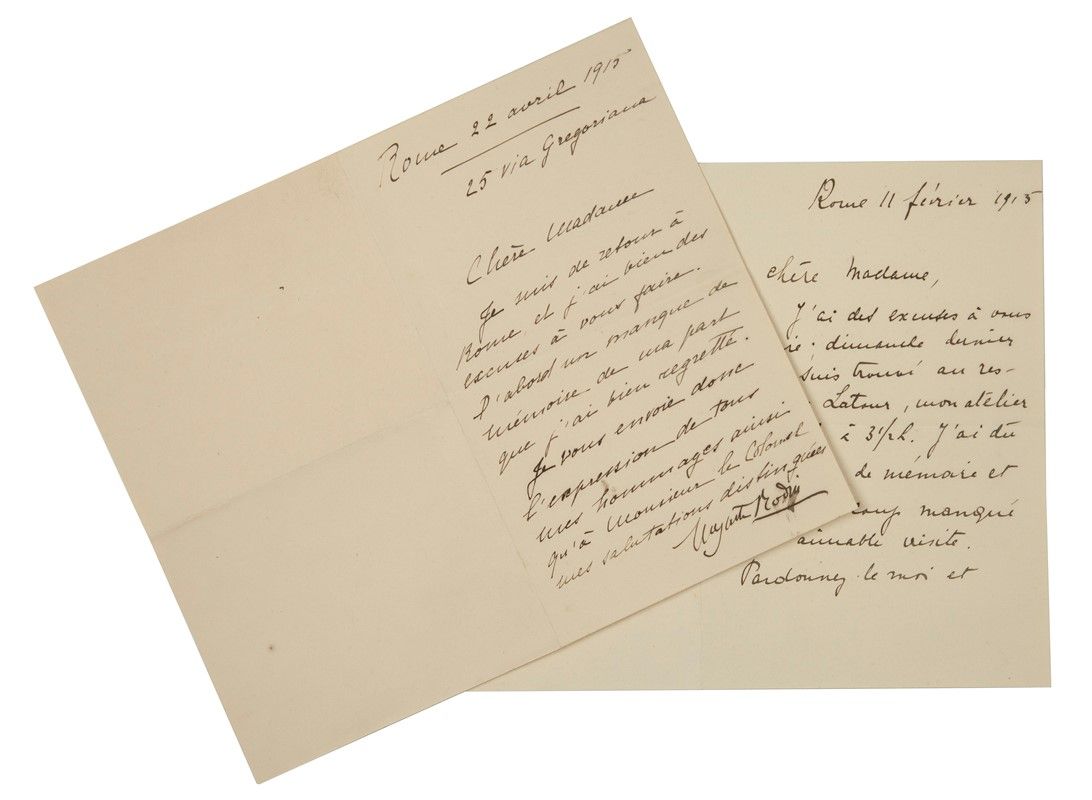 Rome 22 avril 1915
25 via Gregoriana
Chère Madame
Je suis de retour à
Rome et j'ai bien des
excuses à vous faire.
D'abord un manque de
mémoire de ma part
que j'ai bien regretté.
Je vous envoie donc
l'expression de tous
mes hommages ainsi
qu'à Monsieur le Colonel.
mes salutations distinguées
Auguste Rodin
Rome 11 février 1915
chère Madame,
J'ai des excuses à vous
re: dimanche dernier
suis trouvé au res-
Latour, mon atelier
à 3 1/2 h. J'ai dû
de mémoire et
coup manqué
aimable visite.
Pardonnez-le moi et